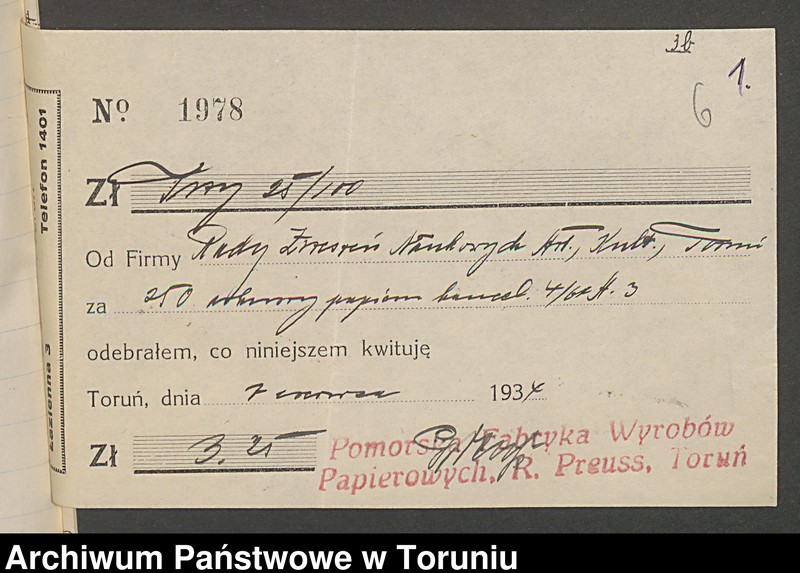 3b
1.
6
Nº 1978
Zł Trzy 25/100
Od Firmy Rady Zrzeszeń Naukowych Art., Kult., Toruń
za 250 papieru kancel. 4/6 A. 3
odebrałem, co niniejszem kwituję
Toruń, dnia 7 czerwca 1934
Zł 3.25
Pomorska Fabryka Wyrobów
Papierowych, R. Preuss, Toruń
Telefon 1401
Łazienna 3
Archiwum Państwowe w Toruniu